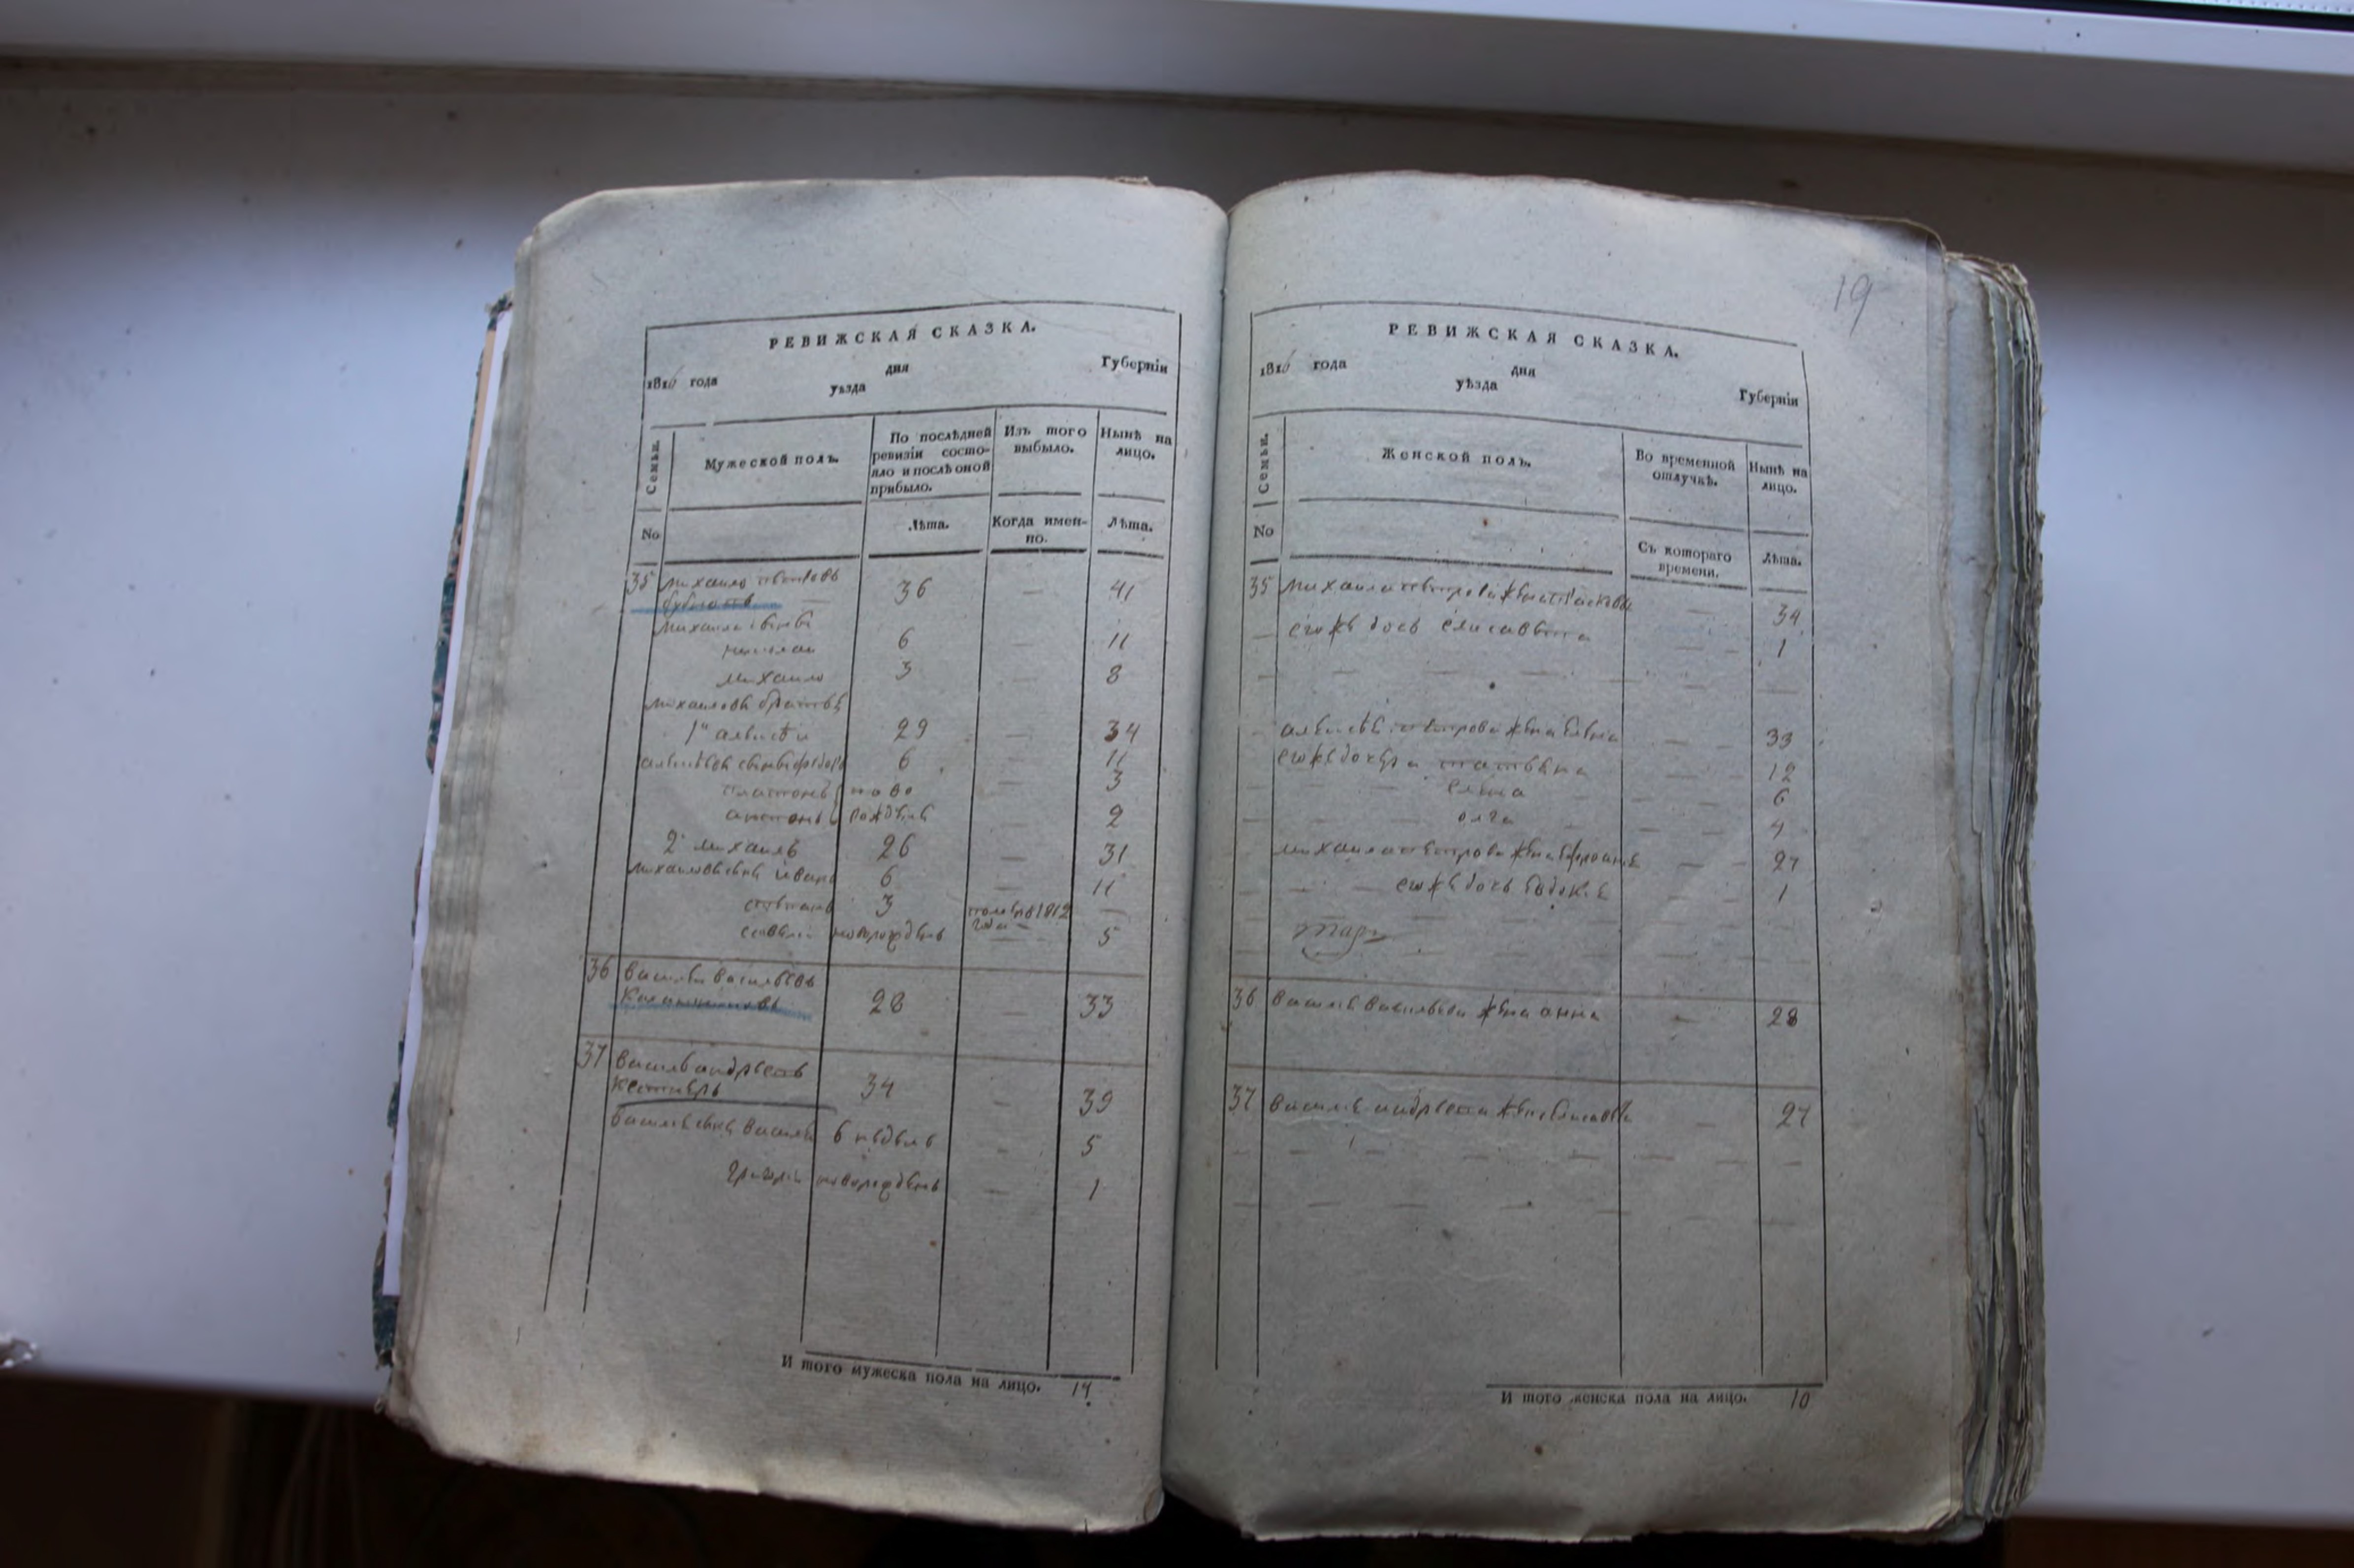 РЕВИЖСКАЯ СКАЗКА.
1816 года дня Губерніи
уѣзда
Семьи.
Мужеской полъ.
По послѣдней ревизіи состояло и послѣ оной прибыло.
Изъ того выбыло.
Нынѣ на лицо.
No
Лѣта.
Когда именно.
Лѣта.
35 михаило петровъ 36 — 41
михаила сынъ
николаи 6 — 11
михаило 3 — 8
михаиловы братья
1й алексѣи 29 — 34
алексѣевы сыновья федоръ 6 — 11
платонъ ново — 3
антонъ рожденые — 2
2й михаилъ 26 — 31
михаиловы сыновья иванъ 6 — 11
степанъ 3 помер в 1812 годе —
савели новорожденъ — 5
36 василеи васильевъ
28 — 33
37 василеи андреевъ
34 — 39
василья сынъ василеи 6 недель — 5
григореи новорожденъ — 1
И того мужеска пола на лицо. 14
19
РЕВИЖСКАЯ СКАЗКА.
1816 года дня
уѣзда Губерніи
Семьи.
Женской полъ.
Во временной отлучкѣ.
Нынѣ на лицо.
No
Съ котораго времени.
Лѣта.
35 михаила петрова жена — 34
его же дочь елисавета — 1
алексѣя петрова жена елена — 33
его же дочери татьяна — 12
елена — 6
олга — 4
михаила петрова жена — 27
его же дочь — 1
36 василья васильева жена анна — 28
37 василья андреева жена — 27
И того женска пола на лицо. 10